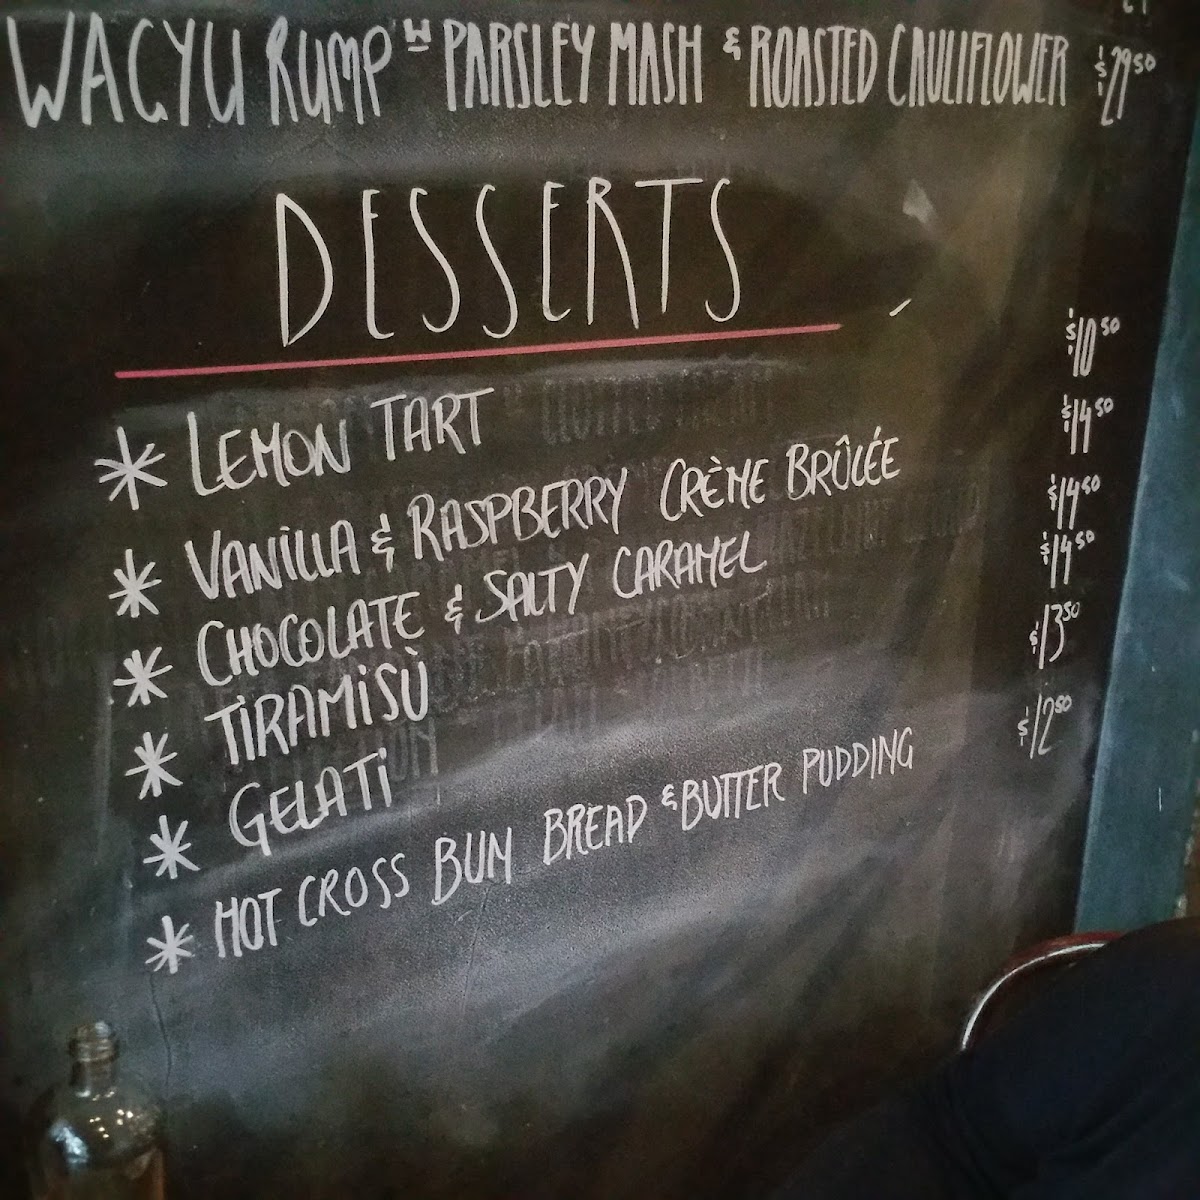 WAGYU RUMP W PARSLEY MASH & ROASTED CAULIFLOWER $29.50
DESSERTS
* LEMON TART $10.50
* VANILLA & RASPBERRY CRÈME BRÛLÉE $14.50
* CHOCOLATE & SALTY CARAMEL $14.50
* TIRAMISÙ $14.50
* GELATI $13.50
* HOT CROSS BUN BREAD & BUTTER PUDDING $12.50